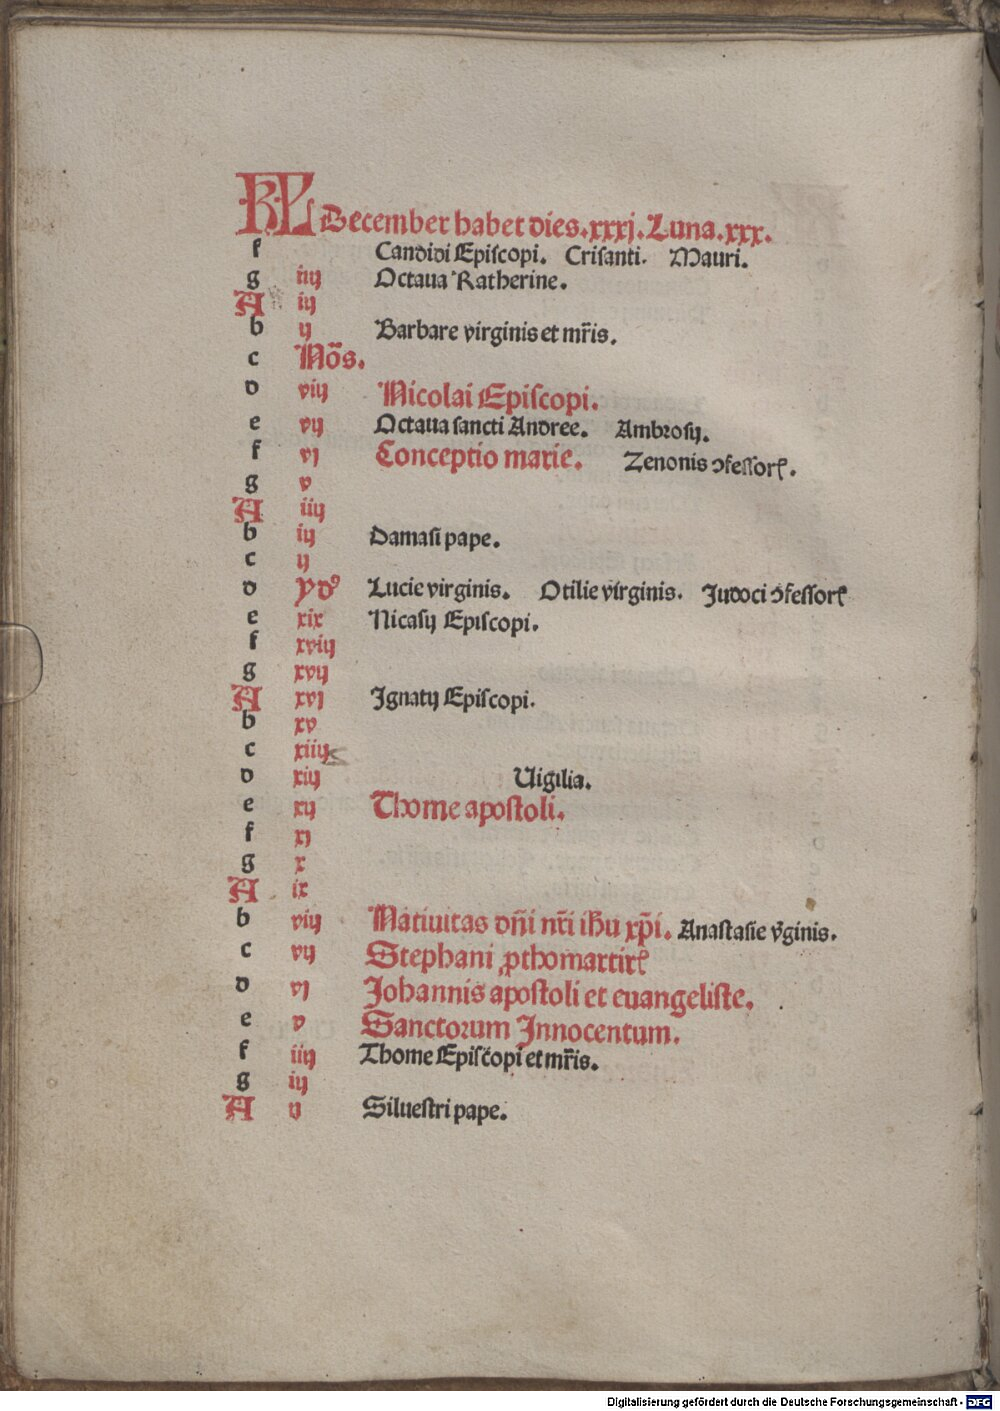 KL December habet dies.xxxj.Luna.xxx.
f Candidi Episcopi. Crisanti. Mauri.
g iiij Octaua Katherine.
A iij
b ij Barbare virginis et mr̃is.
c Nõs.
d viij Nicolai Episcopi.
e vij Octaua sancti Andree. Ambrosij.
f vj Conceptio marie. Zenonis ↄfessorꝭ.
g v
A iiij
b iij Damasi pape.
c ij
d Ydꝰ Lucie virginis. Otilie virginis. Judoci ↄfessorꝭ
e xix Nicasij Episcopi.
f xviij
g xvij
A xvj Ignatij Episcopi.
b xv
c xiiij
d xiij Uigilia.
e xij Thome apostoli.
f xj
g x
A ix
b viij Natiuitas dñi nr̃i ihu xp̃i. Anastasie v̾ginis.
c vij Stephani ꝓthomartirꝭ
d vj Johannis apostoli et euangeliste.
e v Sanctorum Innocentum.
f iiij Thome Episcopi et mr̃is.
g iij
A ij Siluestri pape.
Digitalisierung gefördert durch die Deutsche Forschungsgemeinschaft - DFG